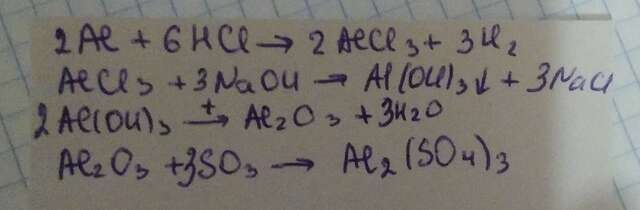 2Al + 6HCl → 2AlCl₃ + 3H₂
AlCl₃ + 3NaOH → Al(OH)₃↓ + 3NaCl
2Al(OH)₃ →ᵗ Al₂O₃ + 3H₂O
Al₂O₃ + 3SO₃ → Al₂(SO₄)₃